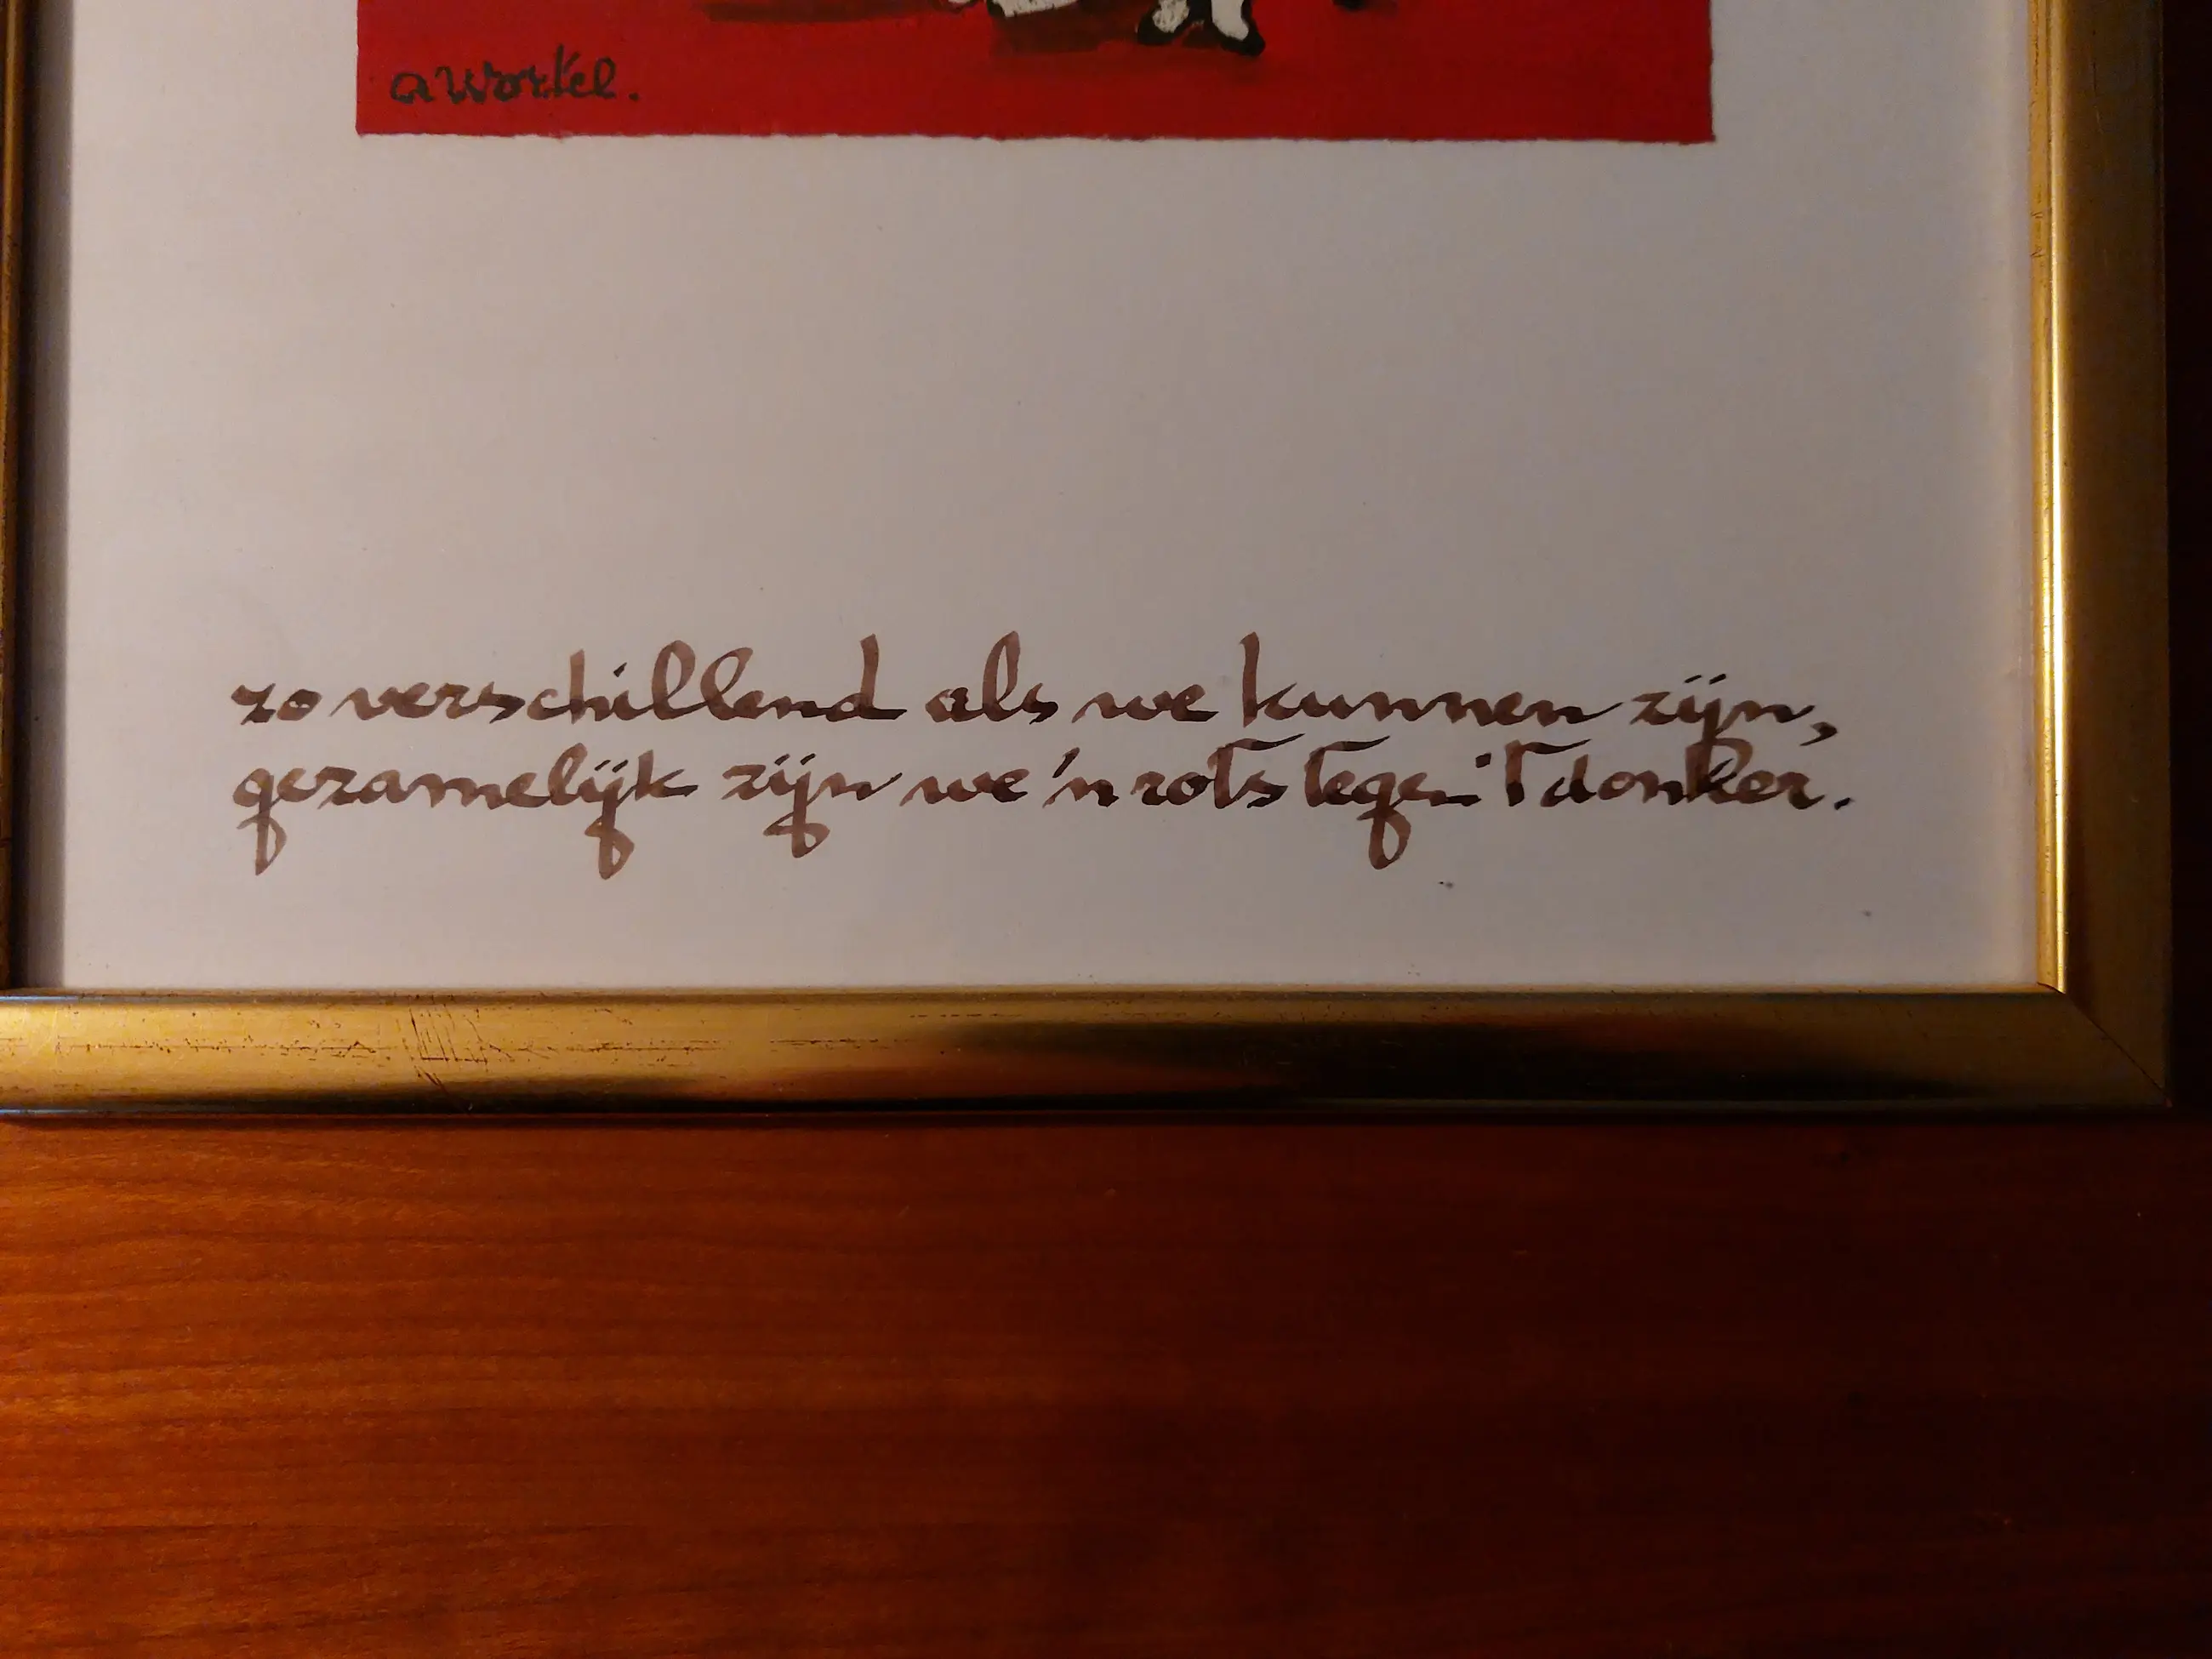 a wortel.
zo verschillend als we kunnen zijn,
gezamelijk zijn we 'n rots tegen 't donker.